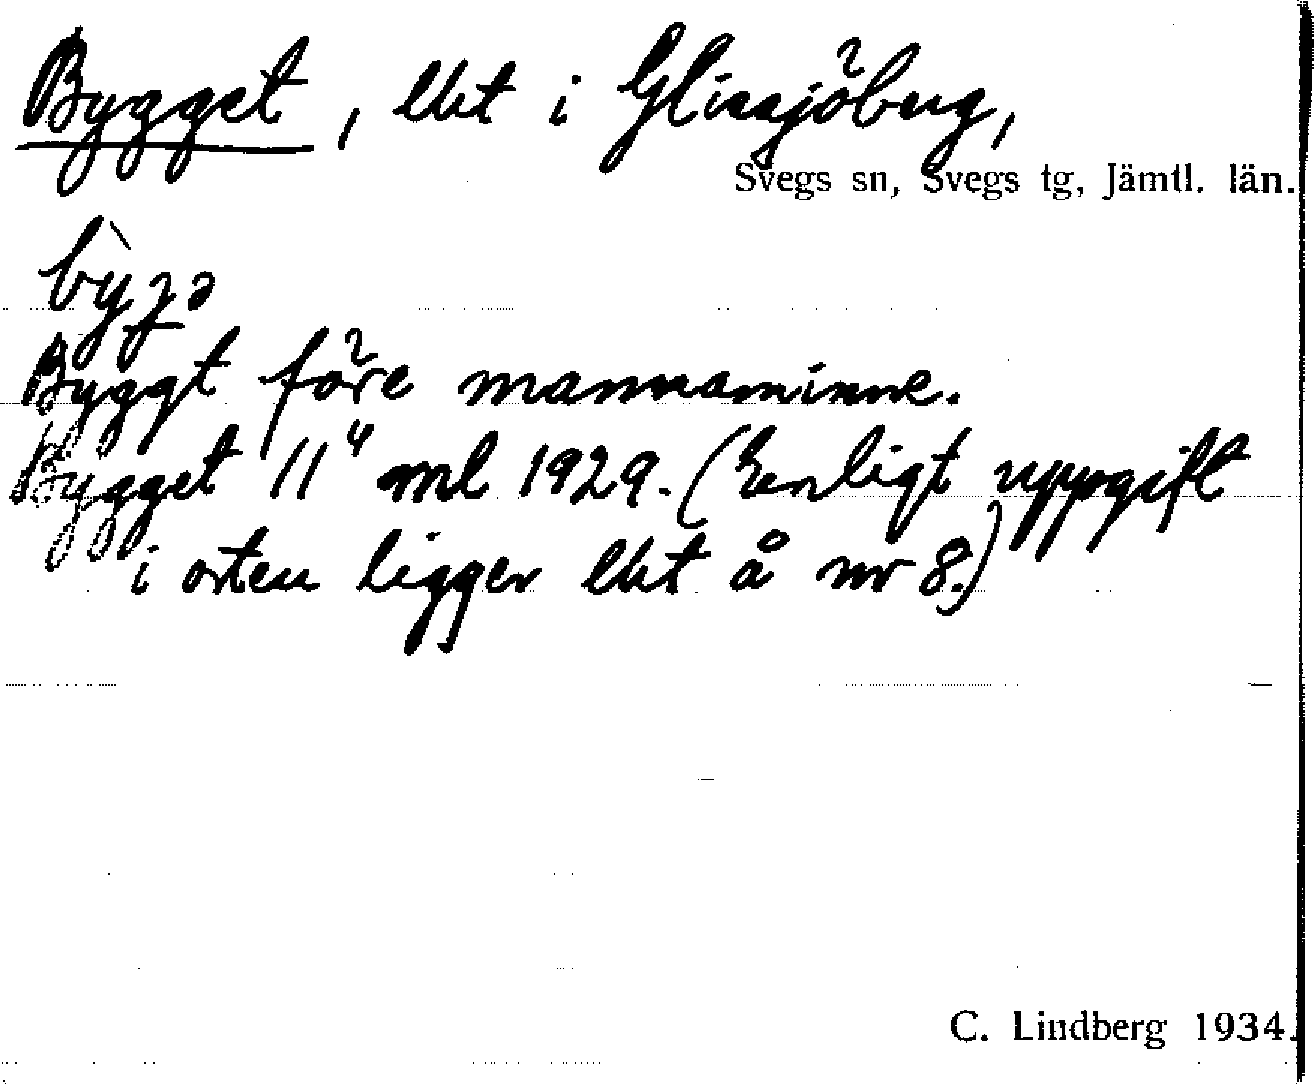 Bygget, lht i Glissjöberg,
Svegs sn, Svegs tg, Jämtl. län.
Byggt före mannaminne.
Bygget 11⁴ ml 1929. (Enligt uppgift
i orten ligger lht å nr 8.)
C. Lindberg 1934.